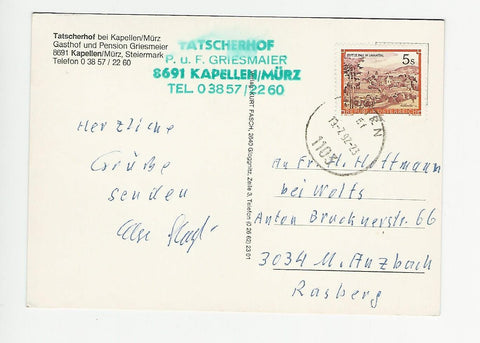 Tatscherhof bei Kapellen/Mürz
Gasthof und Pension Griesmeier
8691 Kapellen/Mürz, Steiermark
Telefon 0 38 57 / 22 60
TATSCHERHOF
P. u. F. GRIESMAIER
8691 KAPELLEN/MÜRZ
TEL. 0 38 57 / 22 60
5s
1103
KURT PASCH, 2640 Gloggnitz, Zeile 3, Telefon (0 26 62) 23 01
Herzliche
Grüße
senden
An Fr. H. Hoffmann
bei Wolfs
Anton Brucknerstr. 66
3034 M. Anzbach
Rasberg